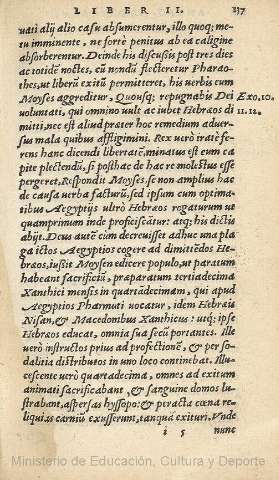 LIBER II. 137
uati alij alio casu absumerentur, illo quoq; me-
tu imminente, ne fortè penitus ab ea caligine
absorberentur. Deinde his discussis post tres dies
ac totidē noctes, cũ nondũ flecteretur Pharao-
thes, ut liberũ exitũ permitteret, his verbis eum
Moyses aggreditur, Quousq; repugnabis Dei Exo, 10.
voluntati, qui omnino vult ac iubet Hebræos di 11.12.
mitti, nec est aliud præter hoc remedium aduer-
sus mala quibus affligimini. Rex uerò iratè fe-
rens hanc dicendi libertatē, minatus est eum ca
pite plectendũ, si posthac de hac re molestus esse
pergeret, Respondit Moyses, se non amplius hac
de causa verba facturũ, sed ipsum cum optima-
tibus Aegyptijs ultrò Hebræos rogaturum ut
quamprimum inde proficiscātur: atq; his dictis
abijt. Deus autē cùm decreuisset adhuc una pla
ga ictos Aegyptios cogere ad dimittēdos He-
bræos, iussit Moysen edicere populo, ut paratum
habeant sacrificiũ, præparatum tertiadecima
Xanthici mensis in quartādecimam, qui apud
Aegyptios Pharmuti uocatur, idem Hebræis
Nisan, & Macedonibus Xanthicus: utq; ipse
Hebræos educat, omnia sua secũ portantes. Ille
uerò instructos prius ad profectionē, & per so-
dalitia distributos in uno loco continebat. Illu-
cescente uerò quartadecima, omnes ad exitum
animati sacrificabant, & sanguine domos lu-
strabant, aspersas hyssopo: & peracta cœna re-
liquias carniũ exusserunt, tanquā exituri. Vnde
i 5 nunc
Ministerio de Educación, Cultura y Deporte